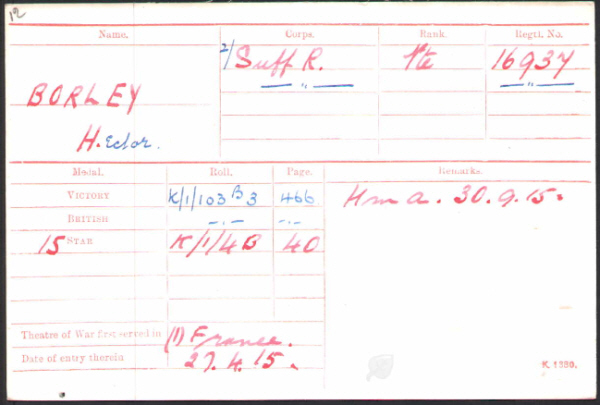 12
Name. Corps. Rank. Regtl. No.
2/ Suff R. Pte 16937
— „ — — „ —
BORLEY
Hector.
Medal. Roll. Page. Remarks.
VICTORY K/1/103 B3 466 Hm a. 30.9.15.
BRITISH —.— —.—
15 STAR K/1/4B 40
Theatre of War first served in (1) France.
Date of entry therein 27.4.15.
K. 1380.